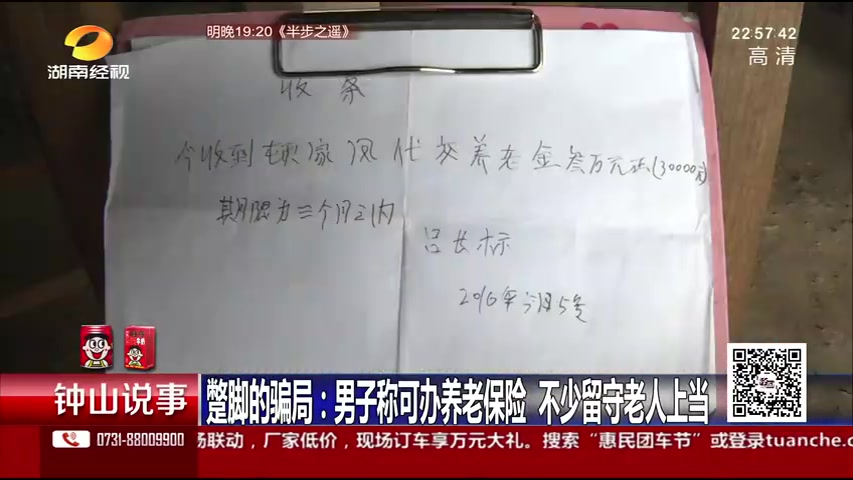 明晚19:20《半步之遥》
22:57:42
高清
湖南经视
收条
今收到 家凤代交养老金叁万元正(30000元)
期限为三个月之内
吕长标
2016年 月5号
钟山说事
蹩脚的骗局：男子称可办养老保险 不少留守老人上当
0731-88009900
场联动，厂家低价，现场订车享万元大礼。搜索“惠民团车节”或登录tuanche.c